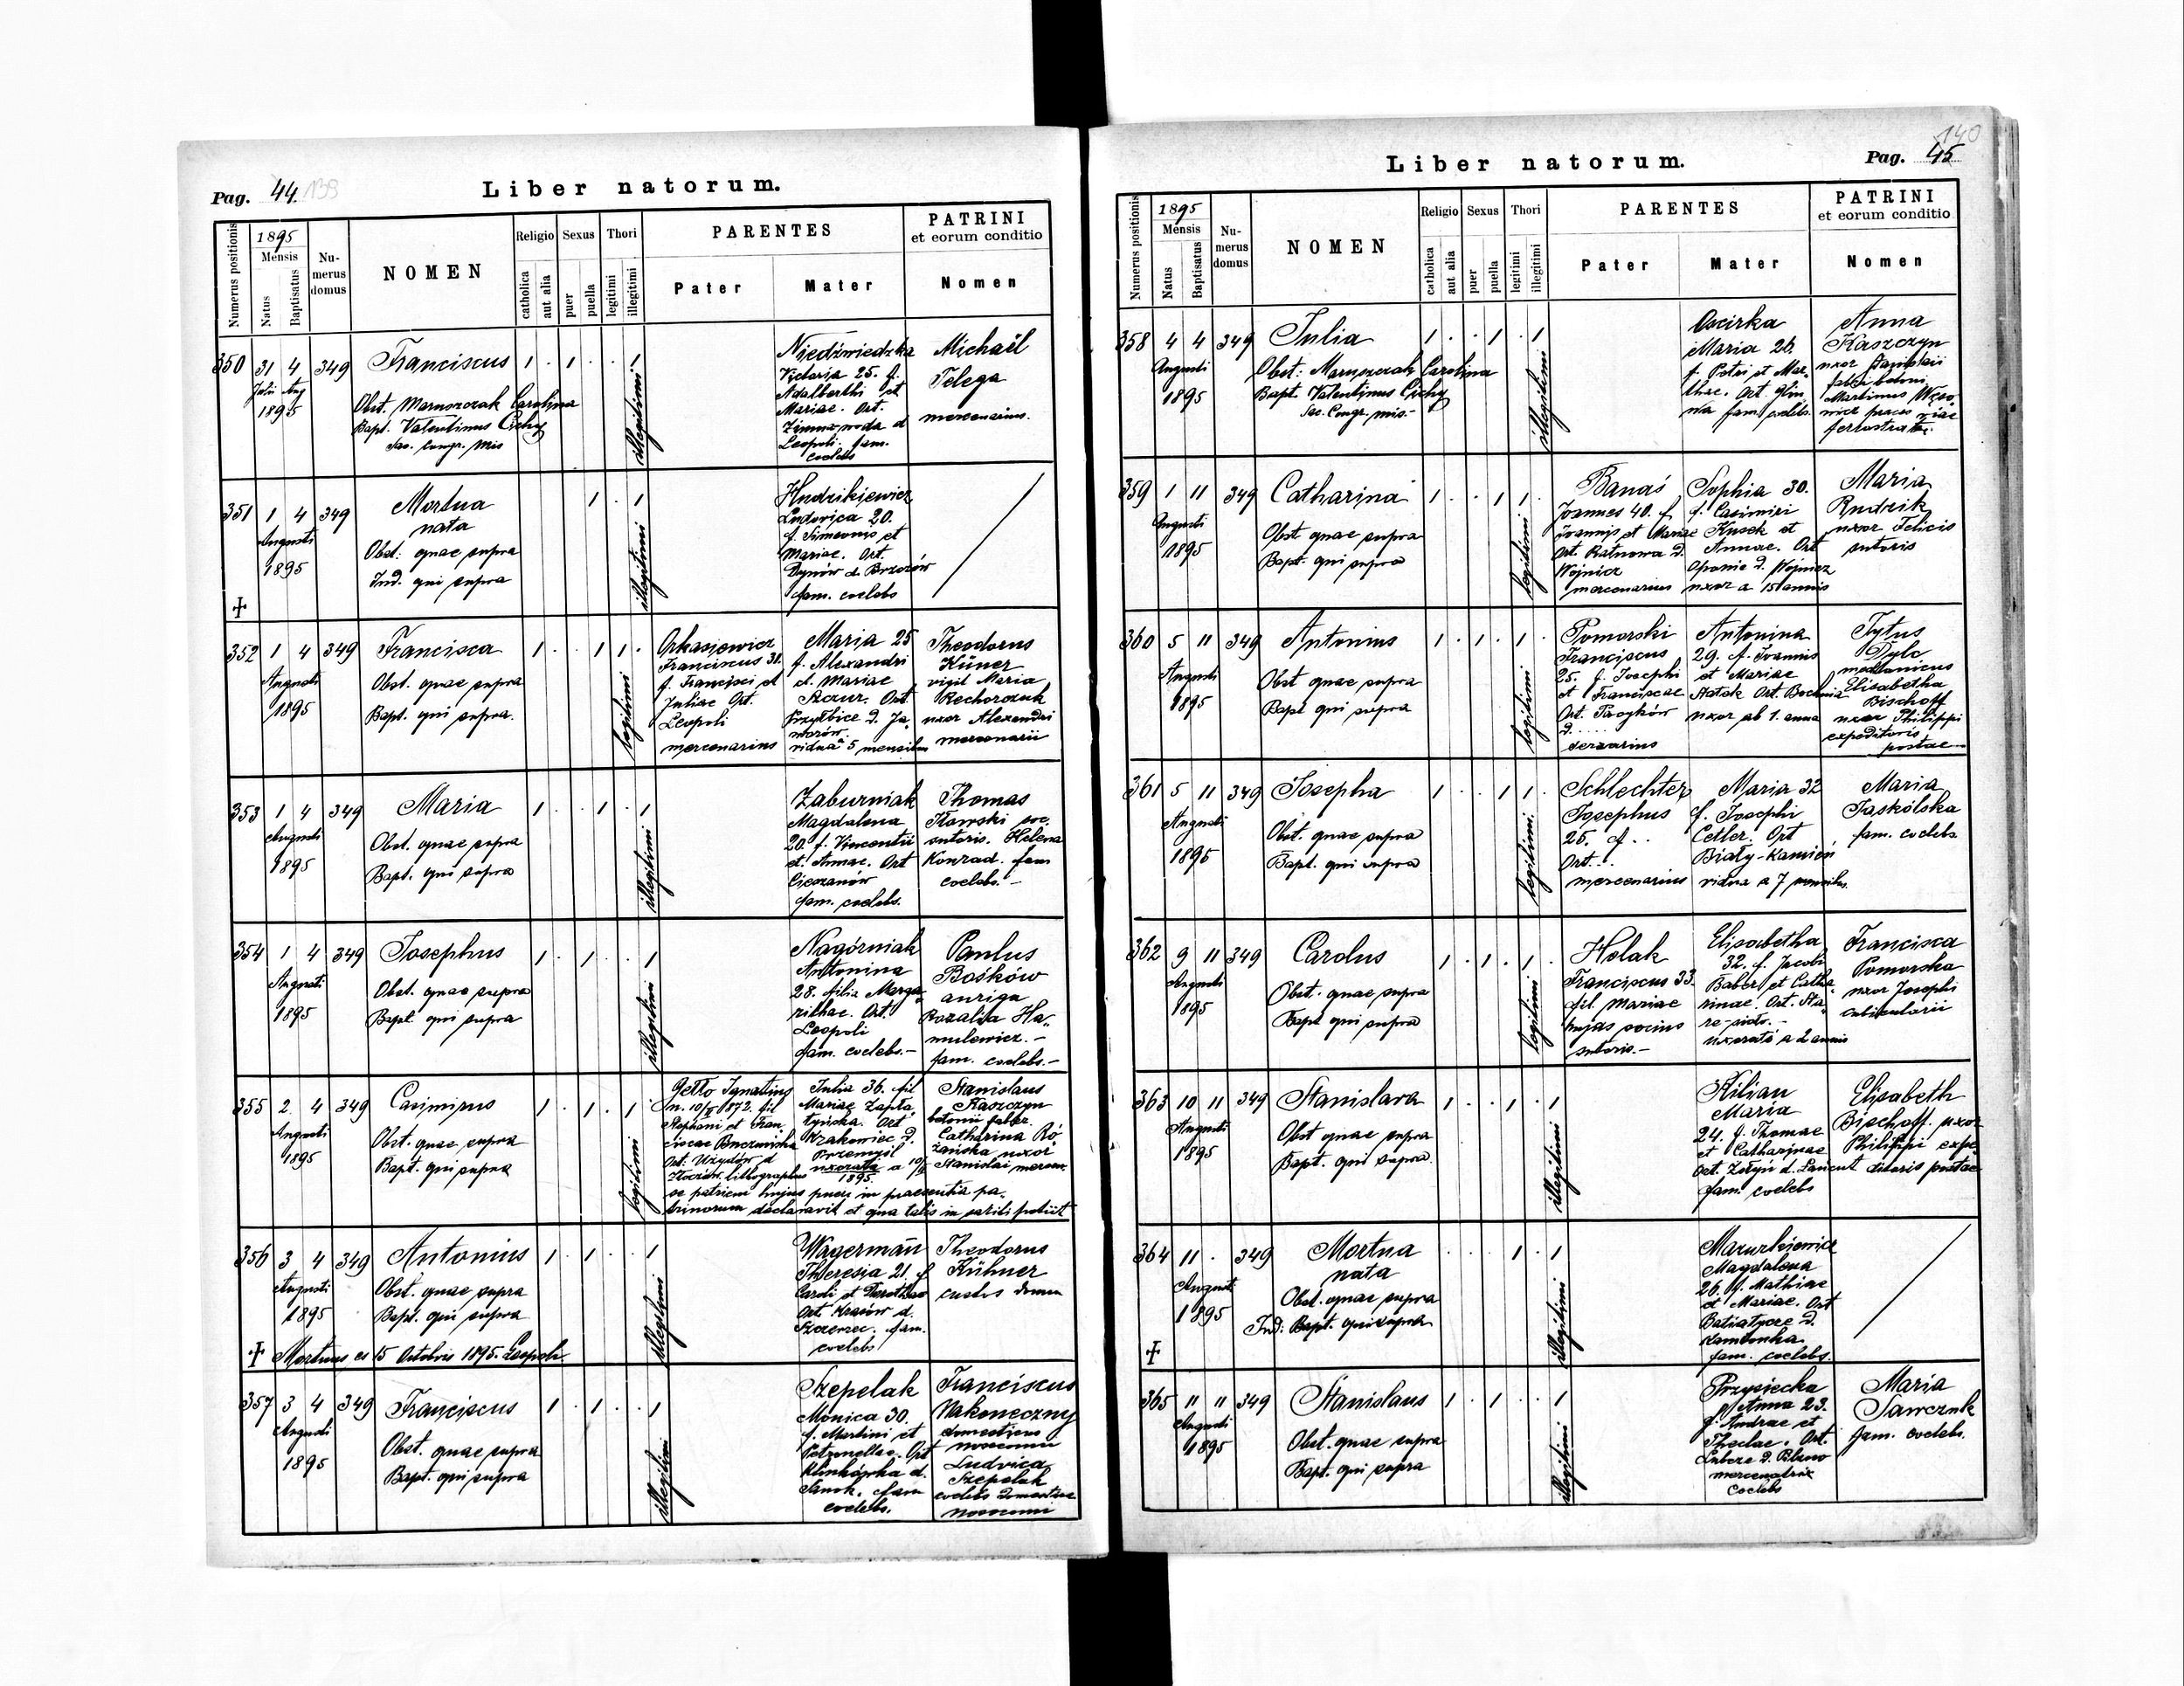 Pag. 44. 139
Liber natorum.
Numerus positionis
1895
Mensis
Natus
Baptisatus
Numerus domus
NOMEN
Religio
catholica
aut alia
Sexus
puer
puella
Thori
legitimi
illegitimi
PARENTES
Pater
Mater
PATRINI
et eorum conditio
Nomen
350 31 4 349 Franciscus 1 . 1 . . 1
Julii Aug
1895
Obst. Maruszczak Carolina
Bapt. Valentinus Cichy
Sac. Congr. Mis
illegitimi
Niedźwiedzka
Victoria 25. f.
Adalberthi et
Mariae. Ort.
Zimna woda d
Leopoli. fam.
coelebs
Michaël
Telega
mercenarius.
351 1 4 349 Mortua
nata
1 . 1
Augusti
1895
Obst: quae supra
Ind. qui supra
illegitimi
Kudzikiewicz
Ludovica 20.
f. Simeonis et
Mariae. Ort.
Dynów d. Brzozów
fam. coelebs
352 1 4 349 Francisca 1 . . 1 1 .
Augusti
1895
Obst. quae supra
Bapt. qui supra.
legitimi
Arkasiewicz
Franciscus 31.
f. Francisci et
Juliae Ort.
Leopoli
mercenarius
Maria 25
f. Alexandri
et Mariae
Szczur. Ort.
Przyłbice d. Ja
worów.
vidua a 5 mensibus
Theodorus
Küner
vigil Maria
Rechorczuk
uxor Alexandri
mercenarii
353 1 4 349 Maria 1 . . 1 . 1
Augusti
1895
Obst. quae supra
Bapt. qui supra
illegitimi
Zaburniak
Magdalena
20. f. Vincentii
et Annae. Ort
Cieszanów
fam. coelebs.
Thomas
Iławski soc.
sutoris. Helena
Konrad. fam
coelebs.–
354 1 4 349 Josephus 1 . 1 . . 1
Augusti
1895
Obst. quae supra
Bapt. qui supra
illegitimi
Nagórniak
Antonina
28. filia Marga
rithae. Ort.
Leopoli
fam. coelebs.–
Paulus
Bośków
auriga
Rozalia Ha„
mulewicz.–
fam. coelebs.–
355 2 4 349 Casimirus 1 . 1 . 1
Augusti
1895
Obst. quae supra
Bapt. qui supra
legitimi
Getto Ignatius
n. 10/ 1872. fil
Stephani et Fran„
ciscae Buczwińska
Ort: Użydów d
Złoczów. lithographus
Julia 36. fil
Mariae Zapła„
tyńska. Ort
Krakowiec d.
Przemyśl
uxorata a 10/
1895.
Stanislaus
Kaszczyn
betonii faber.
Catharina Ró„
żańska uxor
Stanislai mercen.
se patrem hujus pueri in praesentia pa„
trinorum declaravit et qua talis in scribi petiit
356 3 4 349 Antonius 1 . 1 . . 1
Augusti
1895
Obst. quae supra
Bapt. qui supra
illegitimi
Wagermann
Theresia 21. f
Caroli et Dorotheae
Ort Krasów d.
Szczerzec. fam.
coelebs
Theodorus
Kühner
custos domus
✝ Mortuus es 15 Octobris 1895. Leopoli.
357 3 4 349 Franciscus 1 . 1 . . 1
Augusti
1895
Obst. quae supra
Bapt. qui supra
illegitimi
Szepelak
Monica 30.
f. Martini et
Petronellae. Ort
Klimkówka d.
Sanok. fam
coelebs.
Franciscus
Nakoneczny
domesticus
nosocomii
Ludvica
Szepelak
coelebs domestica
nosocomii
Liber natorum.
Pag. 45
140
Numerus positionis
1895
Mensis
Natus
Baptisatus
Numerus domus
NOMEN
Religio
catholica
aut alia
Sexus
puer
puella
Thori
legitimi
illegitimi
PARENTES
Pater
Mater
PATRINI
et eorum conditio
Nomen
358 4 4 349 Julia 1 . . 1 . 1
Augusti
1895
Obst: Maruszczak Carolina
Bapt. Valentinus Cichy
Sac. Congr. mis.–
illegitimi
Oscirka
Maria 26.
f. Petri et Mar„
thae. Ort. Glin
na fam coelebs.
Anna
Kaszczyn
uxor Stanislai
fabri betoni
Martinus
ferrostratae
359 1 11 349 Catharina 1 . . 1 1 .
Augusti
1895
Obst quae supra
Bapt. qui supra
legitimi
Banaś
Joannes 40. f.
Joannis et Mariae
Ort. Ratnowa d.
Wojnicz
mercenarius
Sophia 30.
f. Casimiri
Kusek et
Annae. Ort
d. Wojnicz
uxor a 15 annis
Maria
Rudzik
uxor Felicis
sutoris
360 5 11 349 Antonius 1 . 1 . 1 .
Augusti
1895
Obst quae supra
Bapt qui supra
legitimi
Pomorski
Franciscus
25. f. Josephi
et Franciscae
Ort.
d.
Antonina
29. f. Joannis
et Mariae
Statek Ort. Bochnia
uxor ab 1. anno
Tytus
Dylc
mechanicus
Elisabetha
Bischoff
uxor Philippi
expeditoris
postae
361 5 11 349 Josepha 1 . . 1 1 .
Augusti
1895
Obst. quae supra
Bapt. qui supra
legitimi
Schlechter
Josephus
25. f . .
Ort. . .
mercenarius
Maria 32
f. Josephi
Cetler. Ort
Biały-Kamień
vidua a 7 mensibus.
Maria
Jaskólska
fam. coelebs.
362 9 11 349 Carolus 1 . 1 . 1 .
Augusti
1895
Obst. quae supra
Bapt qui supra
legitimi
Holak
Franciscus 33.
fil. Mariae
hujas socius
sutoris.–
Elisabetha
32. f. Jacobi
Baber et Catha„
rinae. Ort. Sta„
re-sioło.–
uxorata a 2 annis
Francisca
Pomorska
uxor Josephi
cubicularii
363 10 11 349 Stanislava 1 . . 1 . 1
Augusti
1895
Obst quae supra
Bapt. qui supra.
illegitimi
Kilian
Maria
24. f. Thomae
et Catharinae
Ort. Żołyń d. Łańcut
fam. coelebs
Elisabeth
Bischoff uxor
Philippi expe„
ditoris postae
364 11 . 349 Mortua
nata
. . . 1 . 1
Augusti
1895
Obst. quae supra
Ind. Bapt. qui supra
✝
illegitimi
Mazurkiewicz
Magdalena
26. f. Mathiae
et Mariae. Ort
Batiatycze d.
Kamionka
fam. coelebs.
365 11 11 349 Stanislaus 1 . 1 . . 1
Augusti
1895
Obst. quae supra
Bapt. qui supra
illegitimi
Przysiecka
Anna 23.
f. Andrae et
Theclae. Ort.
Lubcza d. Pilzno
mercenatrix
coelebs
Maria
Sawczuk
fam. coelebs.